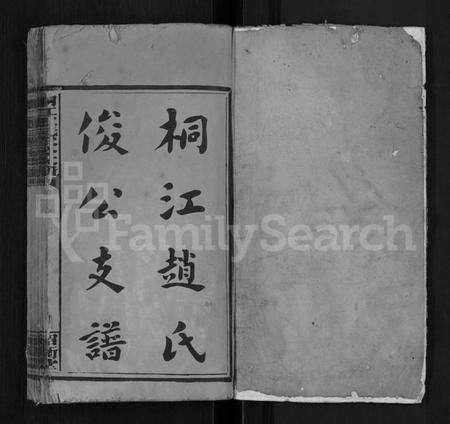 桐江趙氏
俊公支譜
FamilySearch